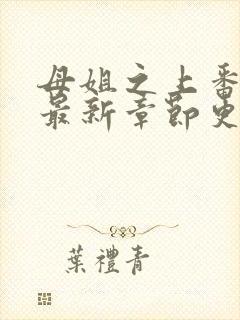 母姐之上番
最新章節史
葉禮青